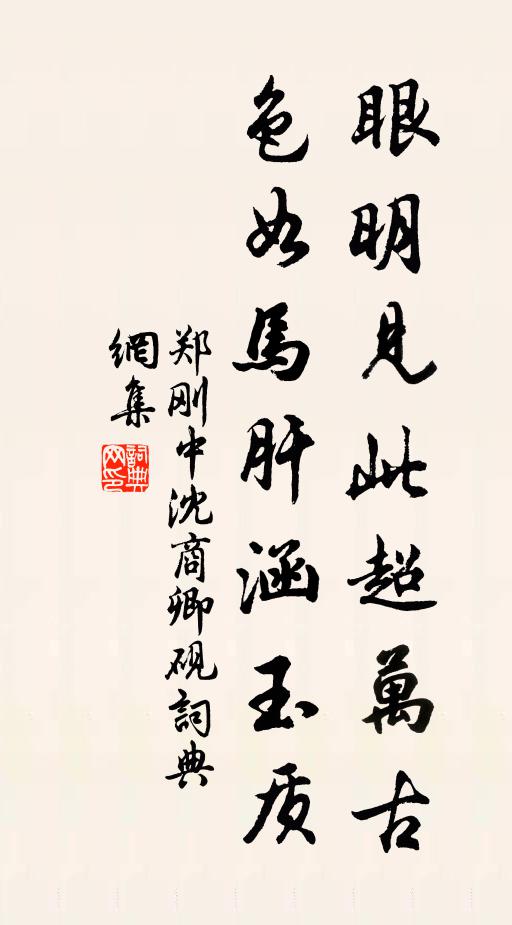 眼明見此超萬古
色如馬肝涵玉质
郑刚中沈商卿砚詞典
網集
詞典网印